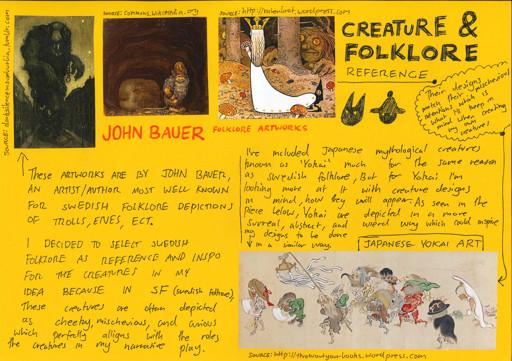 SOURCE: COMMONS.WIKIMEDIA.ORG
SOURCE: http://
.wordpress.com
CREATURE &
FOLKLORE
REFERENCE
Their designs
match their mischevious
intentions, which is
what to keep in
mind when creating
my own
creatures!
JOHN BAUER FOLKLORE ARTWORKS
THESE ARTWORKS ARE BY JOHN BAUER,
AN ARTIST/AUTHOR MOST WELL KNOWN
FOR SWEDISH FOLKLORE DEPICTIONS
OF TROLLS, ENES, ECT.
I DECIDED TO SELECT SWEDISH
FOLKLORE AS REFERENCE AND INSPO
FOR THE CREATURES IN MY
IDEA BECAUSE IN SF (Swedish folklore),
These creatures are often depicted
as cheeky, mischevious, and curious
which perfectly alligns with the roles
the creatures in my narrative play.
I've included Japanese mythological creatures
known as 'Yokai' much for the same reason
as Swedish folklore, But for Yokai I'm
looking more at it with creature designs
in mind, how they will appear. As seen in the
piece below, Yokai are depicted in a more
surreal, abstract, and weird way which could inspire
my designs to be done
in a similar way.
JAPANESE YOKAI ART
SOURCE: http://
.wordpress.com
SOURCE:
.tumblr.com